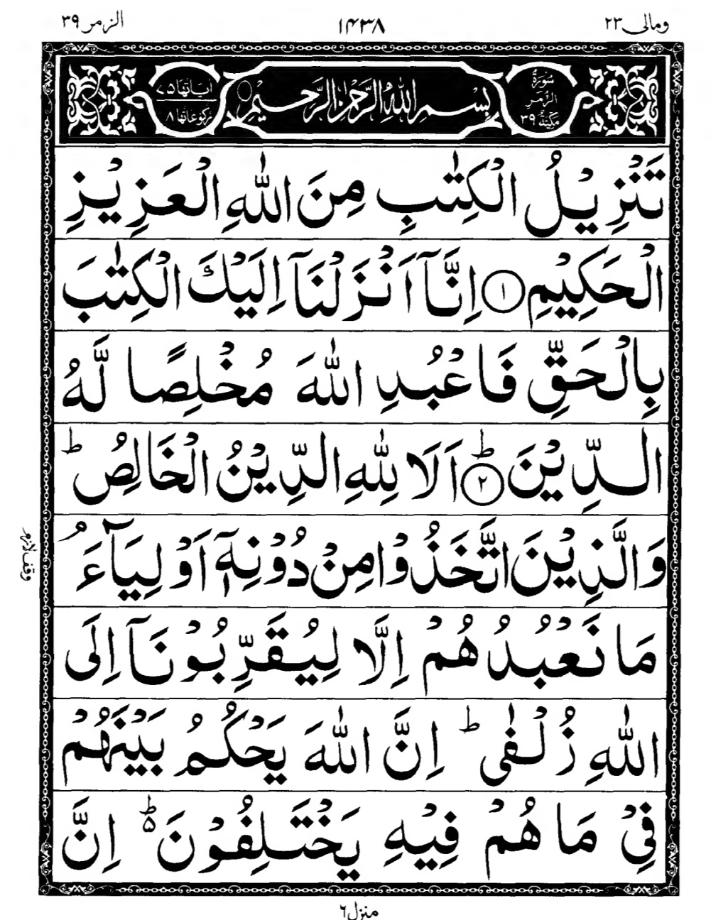 ومالی ۲۳
۱۴۳۸
الزمر ۳۹
سُوۡرَةُ الزُّمَرِ مَكِّيَّةٌ ۳۹
بِسۡمِ اللّٰهِ الرَّحۡمٰنِ الرَّحِيۡمِ
اٰیاتها ۷۵ رکوعاتها ۸
تَنۡزِيۡلُ الۡكِتٰبِ مِنَ اللّٰهِ الۡعَزِيۡزِ
الۡحَكِيۡمِ ۱ اِنَّاۤ اَنۡزَلۡنَاۤ اِلَيۡكَ الۡكِتٰبَ
بِالۡحَقِّ فَاعۡبُدِ اللّٰهَ مُخۡلِصًا لَّهُ
الدِّيۡنَ ؕ ۲ اَلَا لِلّٰهِ الدِّيۡنُ الۡخَالِصُ ؕ
وَالَّذِيۡنَ اتَّخَذُوۡا مِنۡ دُوۡنِهٖۤ اَوۡلِيَآءَ ۘ
وقف لازم
مَا نَعۡبُدُهُمۡ اِلَّا لِيُقَرِّبُوۡنَاۤ اِلَى
اللّٰهِ زُلۡفٰى ؕ اِنَّ اللّٰهَ يَحۡكُمُ بَيۡنَهُمۡ
فِيۡ مَا هُمۡ فِيۡهِ يَخۡتَلِفُوۡنَ ؕ۬ اِنَّ
منزل ۶